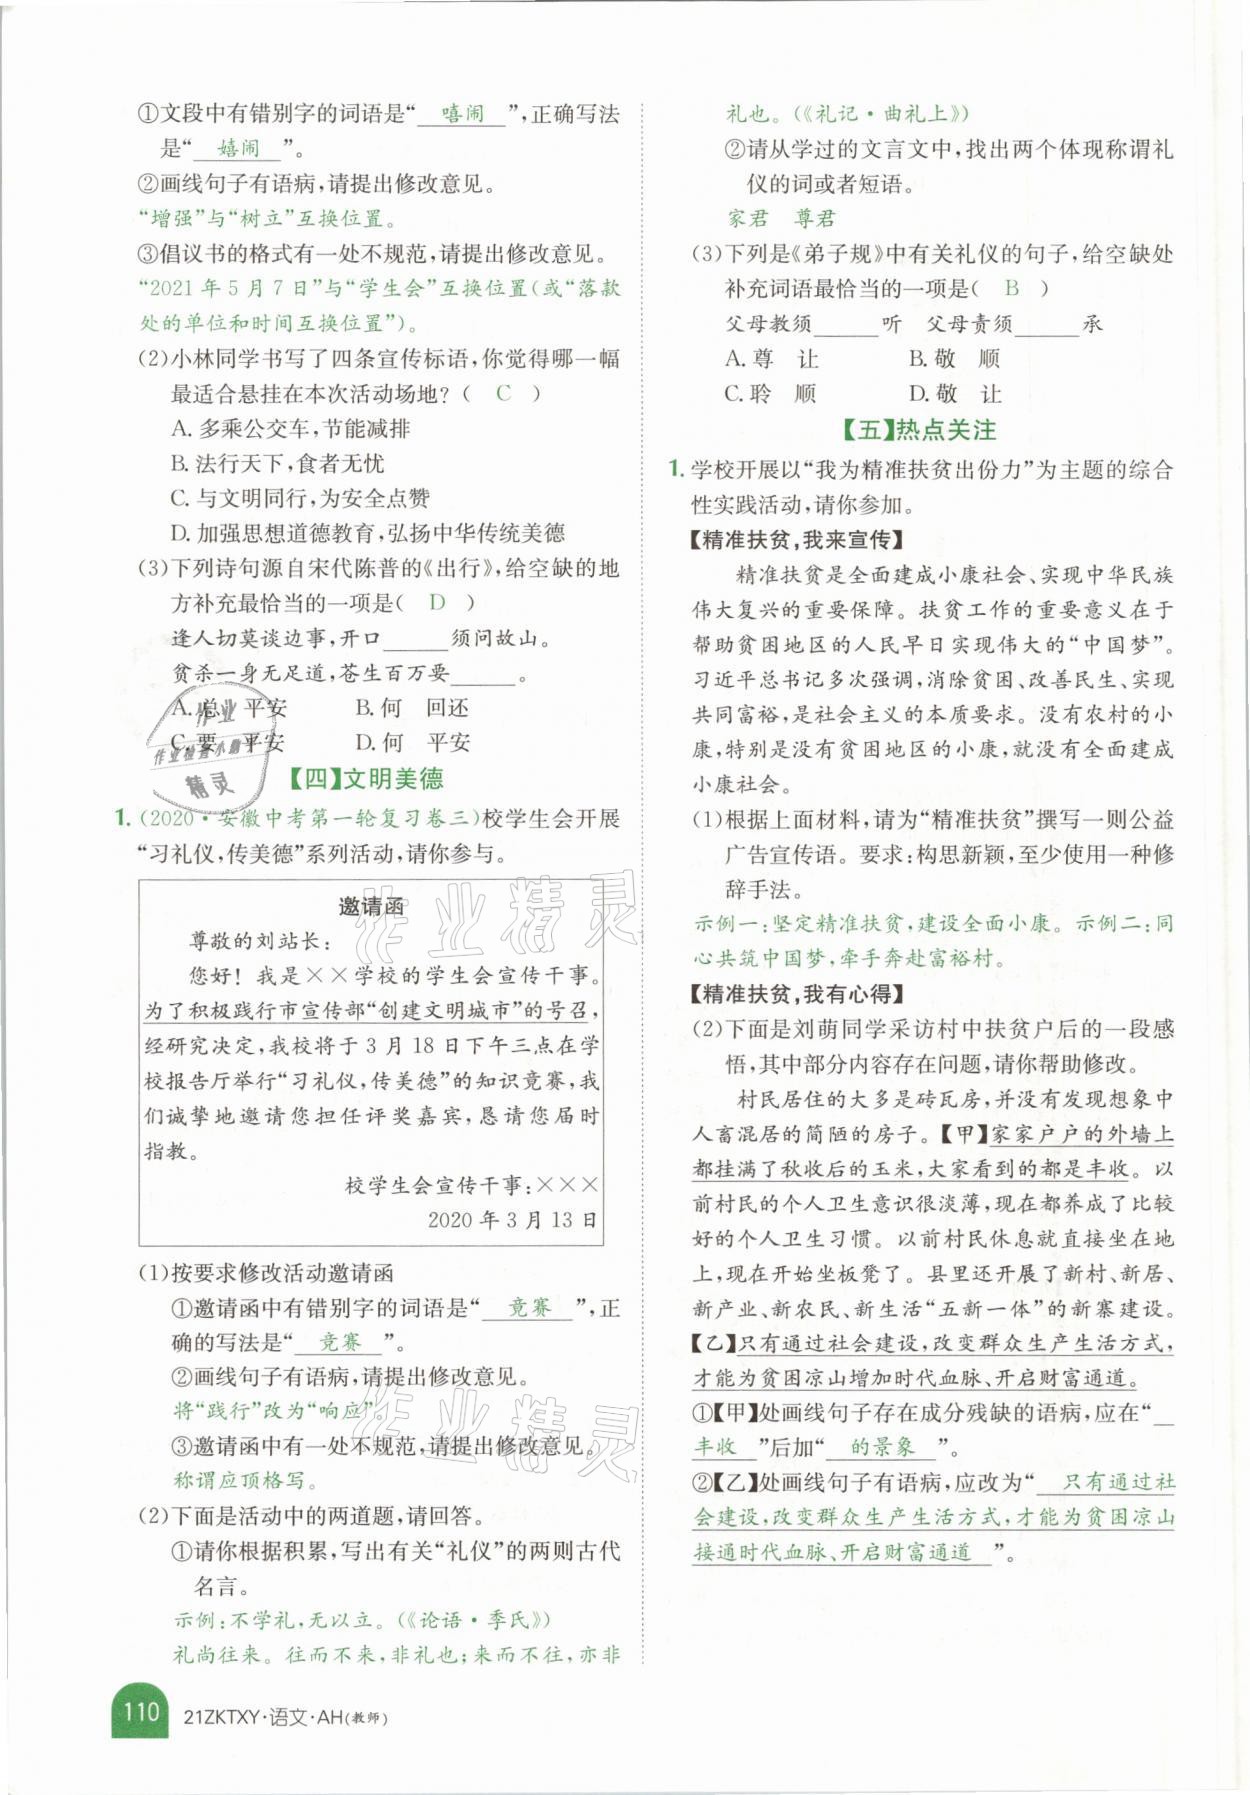 ①文段中有错别字的词语是“ 嘻闹 ”,正确写法
是“ 嬉闹 ”。
②画线句子有语病,请提出修改意见。
“增强”与“树立”互换位置。
③倡议书的格式有一处不规范,请提出修改意见。
“2021年5月7日”与“学生会”互换位置(或“落款
处的单位和时间互换位置”)。
(2)小林同学书写了四条宣传标语,你觉得哪一幅
最适合悬挂在本次活动场地?( C )
A. 多乘公交车,节能减排
B. 法行天下,食者无忧
C. 与文明同行,为安全点赞
D. 加强思想道德教育,弘扬中华传统美德
(3)下列诗句源自宋代陈普的《出行》,给空缺的地
方补充最恰当的一项是( D )
逢人切莫谈边事,开口______须问故山。
贫杀一身无足道,苍生百万要______。
A. 总 平安 B. 何 回还
C. 要 平安 D. 何 平安
【四】文明美德
1. (2020·安徽中考第一轮复习卷三)校学生会开展
“习礼仪,传美德”系列活动,请你参与。
邀请函
尊敬的刘站长:
您好!我是××学校的学生会宣传干事。
为了积极践行市宣传部“创建文明城市”的号召,
经研究决定,我校将于3月18日下午三点在学
校报告厅举行“习礼仪,传美德”的知识竞赛,我
们诚挚地邀请您担任评奖嘉宾,恳请您届时
指教。
校学生会宣传干事:×××
2020年3月13日
(1)按要求修改活动邀请函
①邀请函中有错别字的词语是“ 竞赛 ”,正
确的写法是“ 竞赛 ”。
②画线句子有语病,请提出修改意见。
将“践行”改为“响应”。
③邀请函中有一处不规范,请提出修改意见。
称谓应顶格写。
(2)下面是活动中的两道题,请回答。
①请你根据积累,写出有关“礼仪”的两则古代
名言。
示例:不学礼,无以立。(《论语·季氏》)
礼尚往来。往而不来,非礼也;来而不往,亦非
110
21ZKTXY·语文·AH(教师)
礼也。(《礼记·曲礼上》)
②请从学过的文言文中,找出两个体现称谓礼
仪的词或者短语。
家君 尊君
(3)下列是《弟子规》中有关礼仪的句子,给空缺处
补充词语最恰当的一项是( B )
父母教须______听 父母责须______承
A. 尊 让 B. 敬 顺
C. 聆 顺 D. 敬 让
【五】热点关注
1. 学校开展以“我为精准扶贫出份力”为主题的综合
性实践活动,请你参加。
【精准扶贫,我来宣传】
精准扶贫是全面建成小康社会、实现中华民族
伟大复兴的重要保障。扶贫工作的重要意义在于
帮助贫困地区的人民早日实现伟大的“中国梦”。
习近平总书记多次强调,消除贫困、改善民生、实现
共同富裕,是社会主义的本质要求。没有农村的小
康,特别是没有贫困地区的小康,就没有全面建成
小康社会。
(1)根据上面材料,请为“精准扶贫”撰写一则公益
广告宣传语。要求:构思新颖,至少使用一种修
辞手法。
示例一:坚定精准扶贫,建设全面小康。示例二:同
心共筑中国梦,牵手奔赴富裕村。
【精准扶贫,我有心得】
(2)下面是刘萌同学采访村中扶贫户后的一段感
悟,其中部分内容存在问题,请你帮助修改。
村民居住的大多是砖瓦房,并没有发现想象中
人畜混居的简陋的房子。【甲】家家户户的外墙上
都挂满了秋收后的玉米,大家看到的都是丰收。以
前村民的个人卫生意识很淡薄,现在都养成了比较
好的个人卫生习惯。以前村民休息就直接坐在地
上,现在开始坐板凳了。县里还开展了新村、新居、
新产业、新农民、新生活“五新一体”的新寨建设。
【乙】只有通过社会建设,改变群众生产生活方式,
才能为贫困凉山增加时代血脉、开启财富通道。
①【甲】处画线句子存在成分残缺的语病,应在“
丰收 ”后加“ 的景象 ”。
②【乙】处画线句子有语病,应改为“ 只有通过社
会建设,改变群众生产生活方式,才能为贫困凉山
接通时代血脉、开启财富通道 ”。
作业
作业检查小助手
精灵
作业精灵
作业精灵